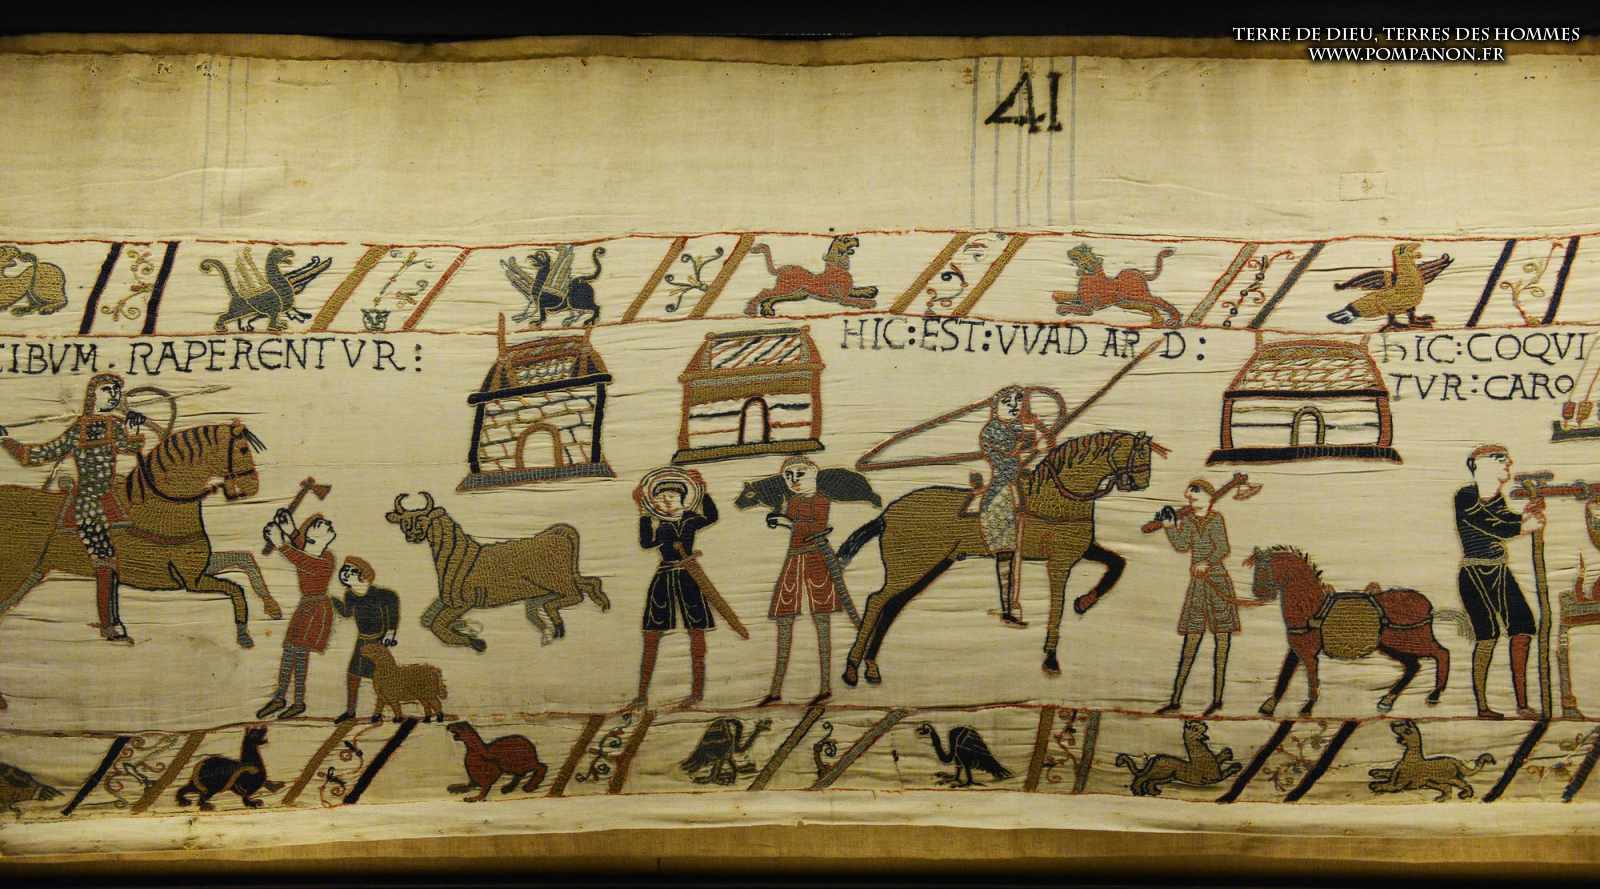 TERRE DE DIEU, TERRES DES HOMMES
WWW.POMPANON.FR
41
CIBVM · RAPERENTVR:
HIC:EST:VVAD ARD:
HIC:COQVI
TVR:CARO